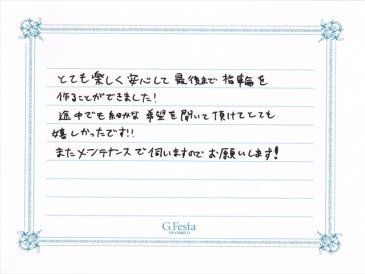 とても楽しく安心して最後まで指輪を
作ることができました!
途中でも細かな希望を聞いて頂けてとても
嬉しかったです!!
またメンテナンスで伺いますのでお願いします!
G.Festa
DIAMOND